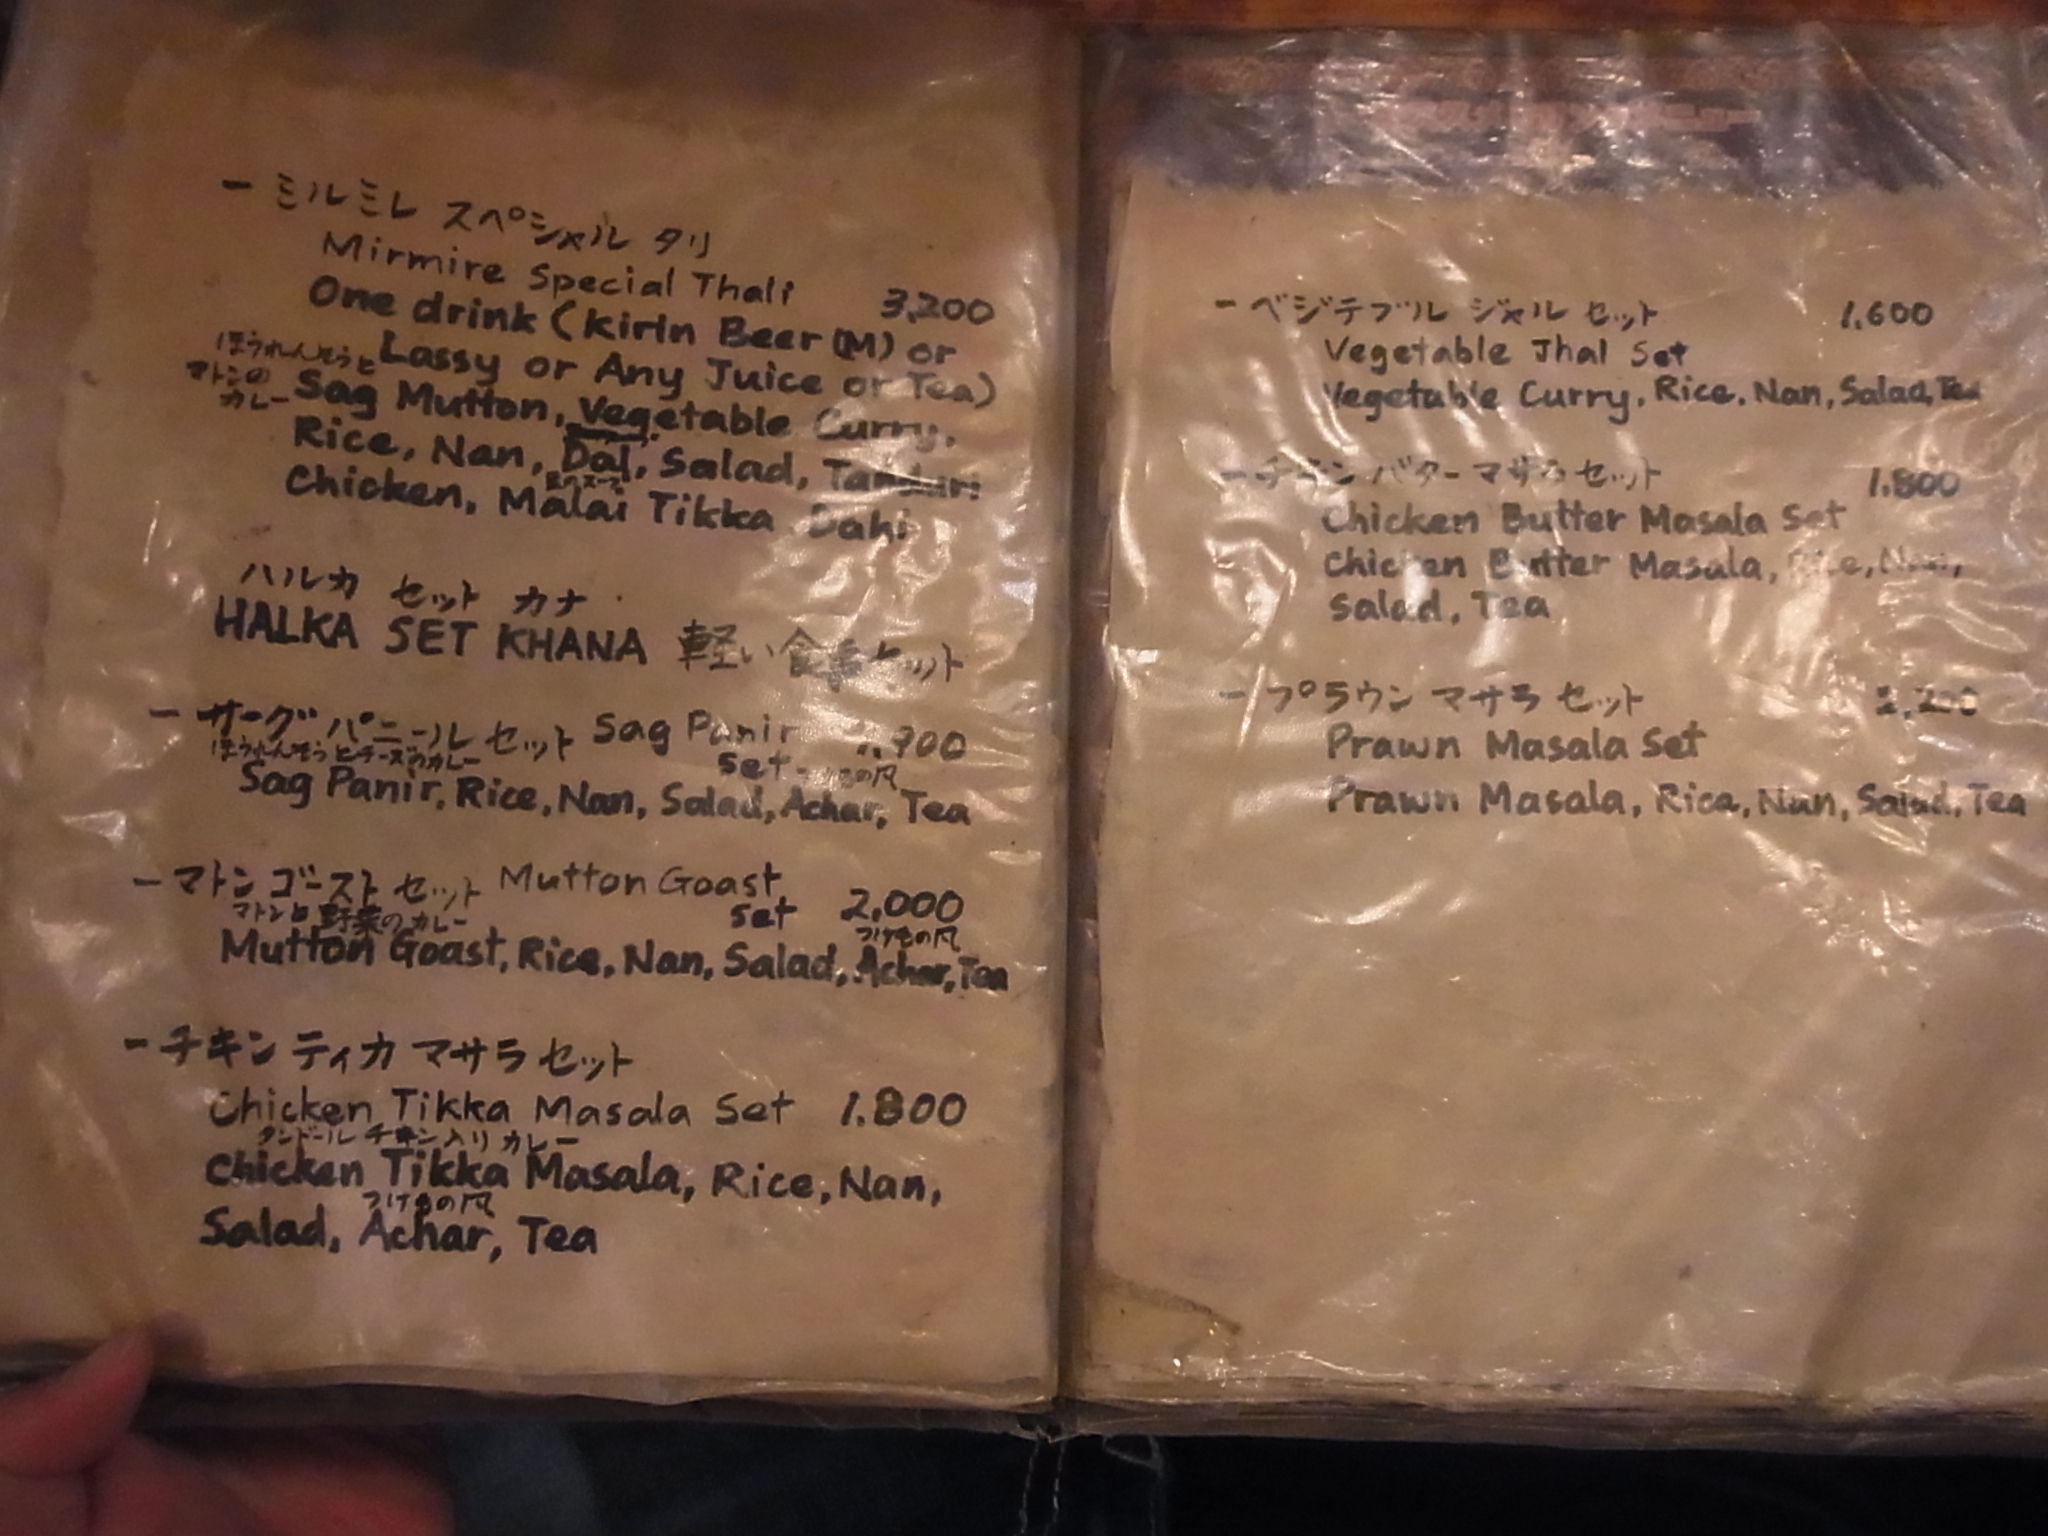 - ミルミレ スペシャル タリ
Mirmire Special Thali 3,200
One drink (Kirin Beer (M) or
Lassy or Any Juice or Tea)
ほうれんそうと
マトンの
カレー
Sag Mutton, Vegetable Curry,
Rice, Nan, Dal, Salad, Tanduri
Chicken, Malai Tikka Dahi
ハルカ セット カナ
HALKA SET KHANA 軽い食事セット
- サーグ パニール セット Sag Panir
ほうれんそうとチーズのカレー
Set
Sag Panir, Rice, Nan, Salad, Achar, Tea
- マトン ゴースト セット Mutton Goast
Set 2,000
マトンと野菜のカレー
つけもの風
Mutton Goast, Rice, Nan, Salad, Achar, Tea
- チキン ティカ マサラ セット
Chicken Tikka Masala Set 1.800
タンドール チキン入り カレー
Chicken Tikka Masala, Rice, Nan,
つけもの風
Salad, Achar, Tea
- ベジテブル ジャル セット 1.600
Vegetable Jhal Set
Vegetable Curry, Rice, Nan, Salad, Tea
- チキン バター マサラ セット 1.800
Chicken Butter Masala Set
Chicken Butter Masala, Rice, Nan,
Salad, Tea
- プラウン マサラ セット
Prawn Masala Set
Prawn Masala, Rice, Nan, Salad, Tea